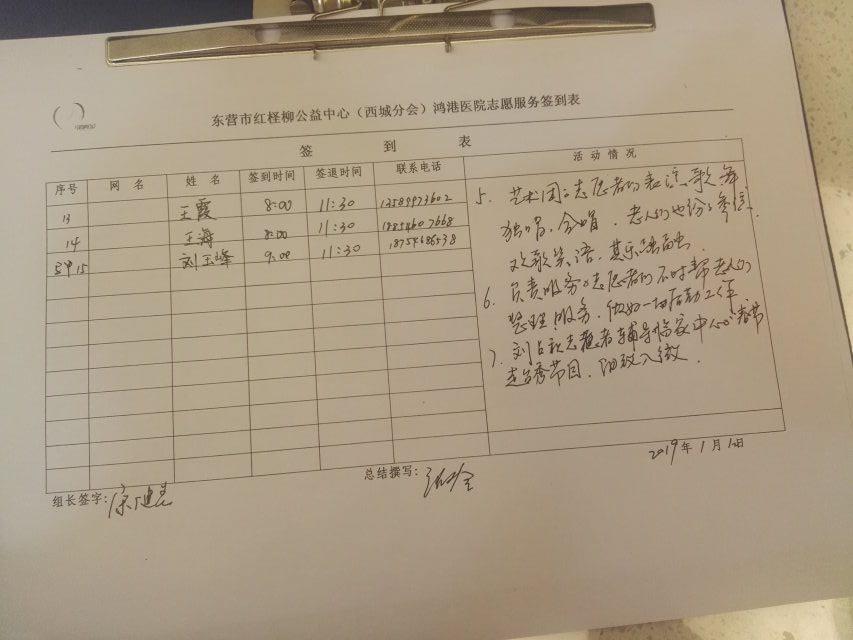 东营市红柽柳公益中心（西城分会）鸿港医院志愿服务签到表
签 到 表
活 动 情 况
序号 网 名 姓 名 签到时间 签退时间 联系电话
13 王霞 8:00 11:30 13589973602
14 王海 8:00 11:30 18854607668
15 刘玉峰 9:00 11:30 18754686538
5. 艺术团的志愿者们表演歌舞
独唱、合唱、老人们也纷纷参与、
欢歌笑语、其乐融融。
6. 负责服务的志愿者们不时帮老人们
整理服务、做好一切后勤工作
7. 刘占秋志愿者辅导临家中心的春节
走台秀节目、细致入微.
2019年1月12日
组长签字:
总结撰写: